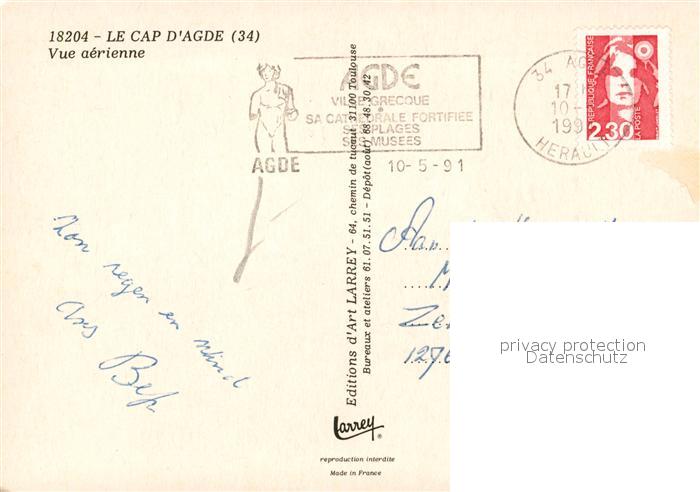 18204 - LE CAP D'AGDE (34)
Vue aérienne
AGDE
VILLE GRECQUE
SA CATHEDRALE FORTIFIEE
SES PLAGES
SES MUSEES
AGDE
10-5-91
34 AGDE
17
10-
199
HERAULT
REPUBLIQUE FRANÇAISE
2.30
LA POSTE
Zon regen en wind
Ans Bep
Aan
M
1276
privacy protection
Datenschutz
Editions d'Art LARREY - 64, chemin de tucaut 31100 Toulouse
Bureaux et ateliers 61.07.51.51 - Dépôt (août) 68.48.30.42
Larrey
reproduction interdite
Made in France